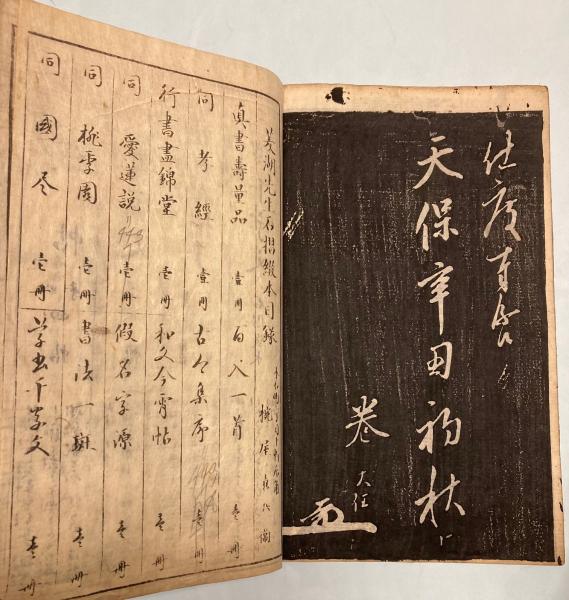 仕度有餘
天保辛丑初秋
卷大任
菱湖先生石摺綴本目録
真書壽量品 壹冊 百人一首 壹冊
同 孝經 壹冊 古今集序 壹冊
行書晝錦堂 壹冊 和文今宵帖 壹冊
同 愛蓮説 壹冊 假名字源 壹冊
同 桃李園 壹冊 書法一斑 壹冊
同 國尽 壹冊 草書千字文 壹冊